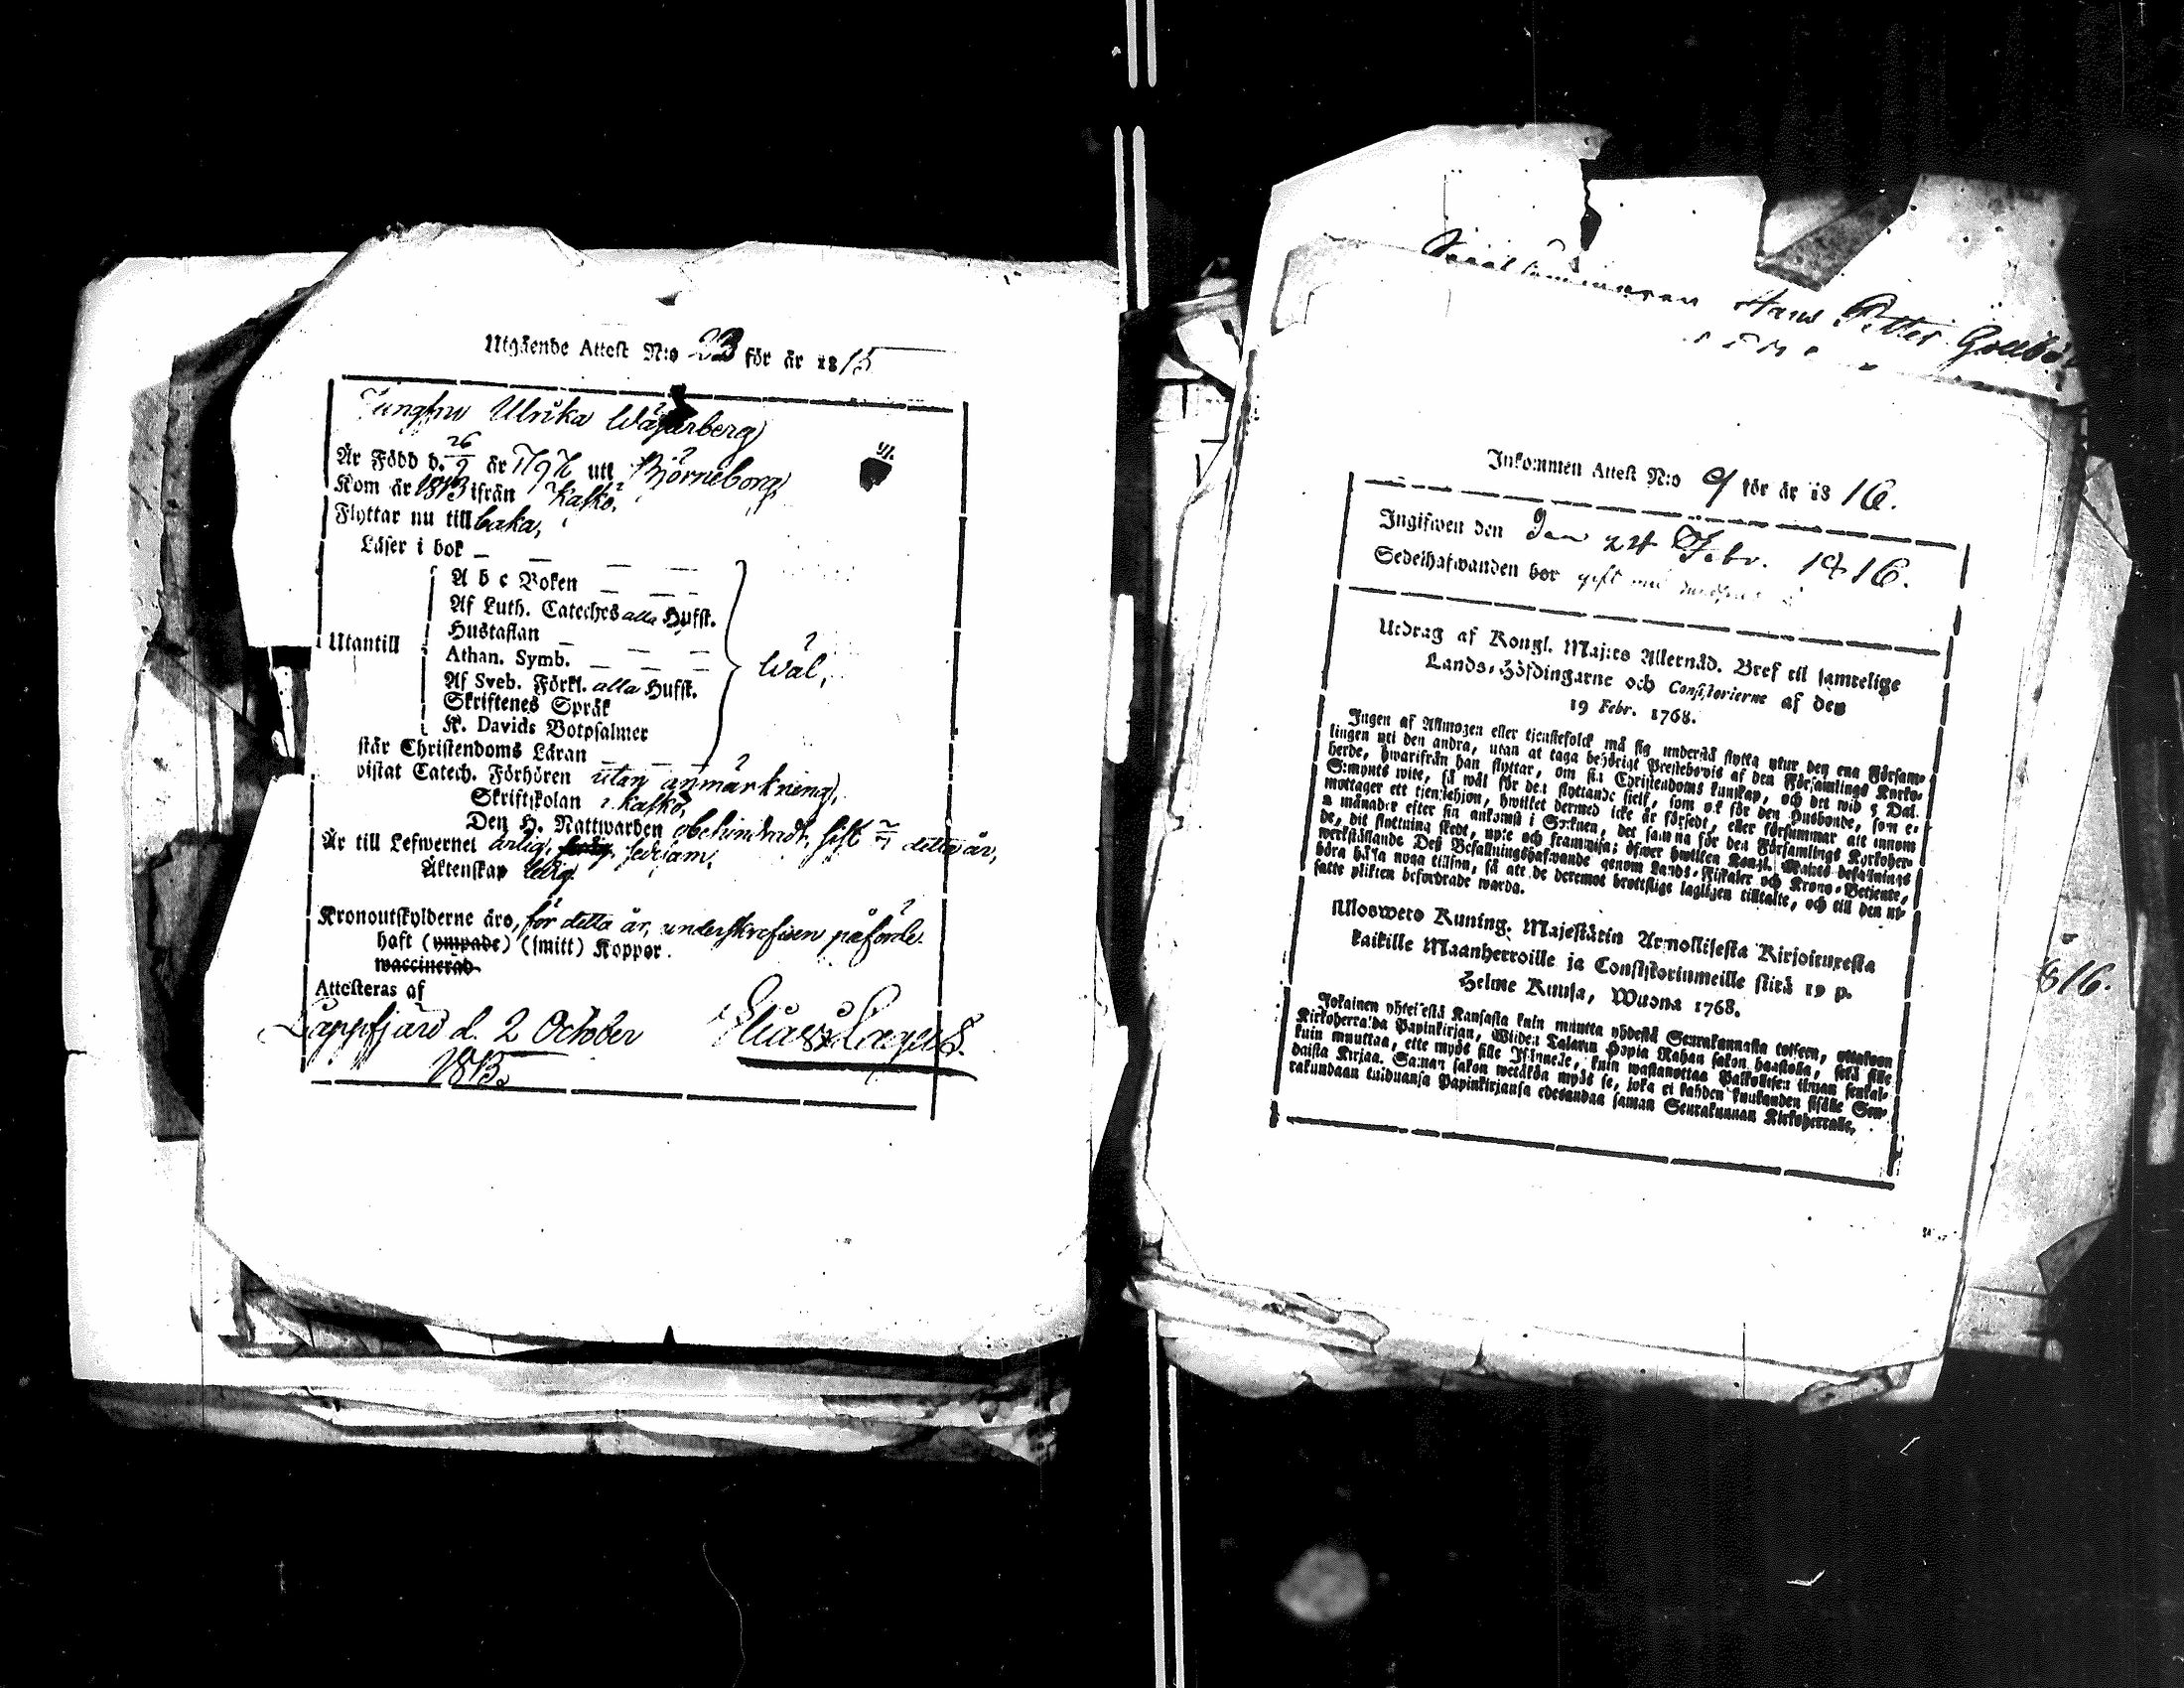 Utgående Attest N:o 23 för år 1815
Jungfru Ulrika
Är Född d. 26/9 år 1797 utt Björneborg,
Kom år 1813 ifrån Kaskö,
Flyttar nu till baka,
Läser i bok — — — —
A b c Boken — — —
Af Luth. Cateches alla Hufst.
Hustaflan —
Utantill
Athan. Symb. — — —
Wäl,
Af Sveb. Förkl. alla Hufst.
Skriftenes Språk
K. Davids Botpsalmer
står Christendoms Läran — — —
vistat Catech. Förhören utan anmärkning,
Skriftskolan i Kaskö,
Den H. Nattwarden obehindradt, sist detta år,
Är till Lefwernet ärlig, sedesam,
Äktenskap ledig.
Kronoutskylderne äro, för detta år, underskrefwen påförde.
haft (ympade) (smitt) Koppor.
waccinerad
Attesteras af
Lappfjärd d. 2 October
Elias Lagus.
Hans Petter
Inkommen Attest N:o 9 för år 1816.
Ingifwen den den 24 Febr. 1816.
Sedelhafwanden bor gift med
Utdrag af Kongl. Maj:ts Allernåd. Bref til samtelige
Lands-Höfdingarne och Consistorierne af den
19 Febr. 1768.
Ingen af Allmogen eller tjenstefolck må sig understå flytta utur den ena Försam-
lingen uti den andra, utan at taga behörigt Prestebevis af den Församlings Kyrko-
herde, hwarifrån han flyttar, om sin Christendoms kunskap, och det wid 5 Dal.
S:mynts wite, så wäl för den flyttande sielf, som ock för den Husbonde, som e-
mottager ett tjenstehjon, hwilket dermed icke är försedt, eller försummar att innom
2 månader efter sin ankomst i Socknen, det samma för den Församlings Kyrkoher-
de, dit flyttning skedt, upte och framwisa; öfwer hwilken Kongl. Maj:ts befallnings
werkställande Des Befallningshafwande genom Lands-Fiskaler och Krono-Betjente,
böra hålla noga tillsyn, så att de deremot brottslige lagligen tilltalte, och till den ut-
satte plikten befordrade warda.
Uloswedo Kuning. Majestätin Armollisesta Kirjoituxesta
kaikille Maanherroille ja Consistoriumeille siitä 19 p.
Helme Kuusa, Wuona 1768.
Jokainen yhteisestä Kansasta kuin muutta yhdestä Seurakunnasta toiseen, ottakoon
Kirkoherralda Papinkirjan, Wiiden Talarin Hopia Rahan sakon haastolla, sekä sille
kuin muuttaa, ette myös sille Isännelle, kuin wastanottaa Palkollisen ilman senkal-
daista Kirjaa. Saman sakon wetäkön myös se, joka ei kahden kuukauden sisälle Seu-
rakundaan tulduansa Papinkirjansa edesandaa saman Seurakunnan Kirkoherralle,
816.